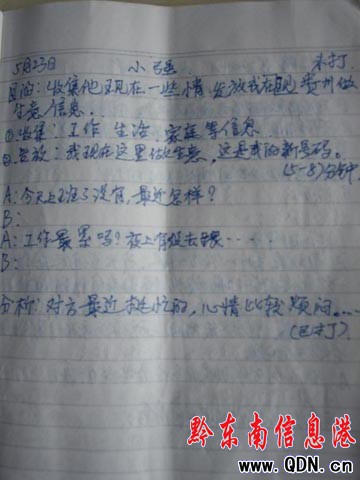 5月23日 小强 未打
目的：收集他现在一些情 发放我在贵州做
生意信息．．
①收集：工作 生活 家庭 等信息
②发放：我现在这里做生意，这是我的新号码。
(5-8)分钟
A：今天上班了没有，最近怎样？
B：
A：工作最累吗？晚上有没去
B：
分析：对方最近挺忙的，心情比较烦闷．．．
(已打)
黔东南信息港
www.QDN.cn